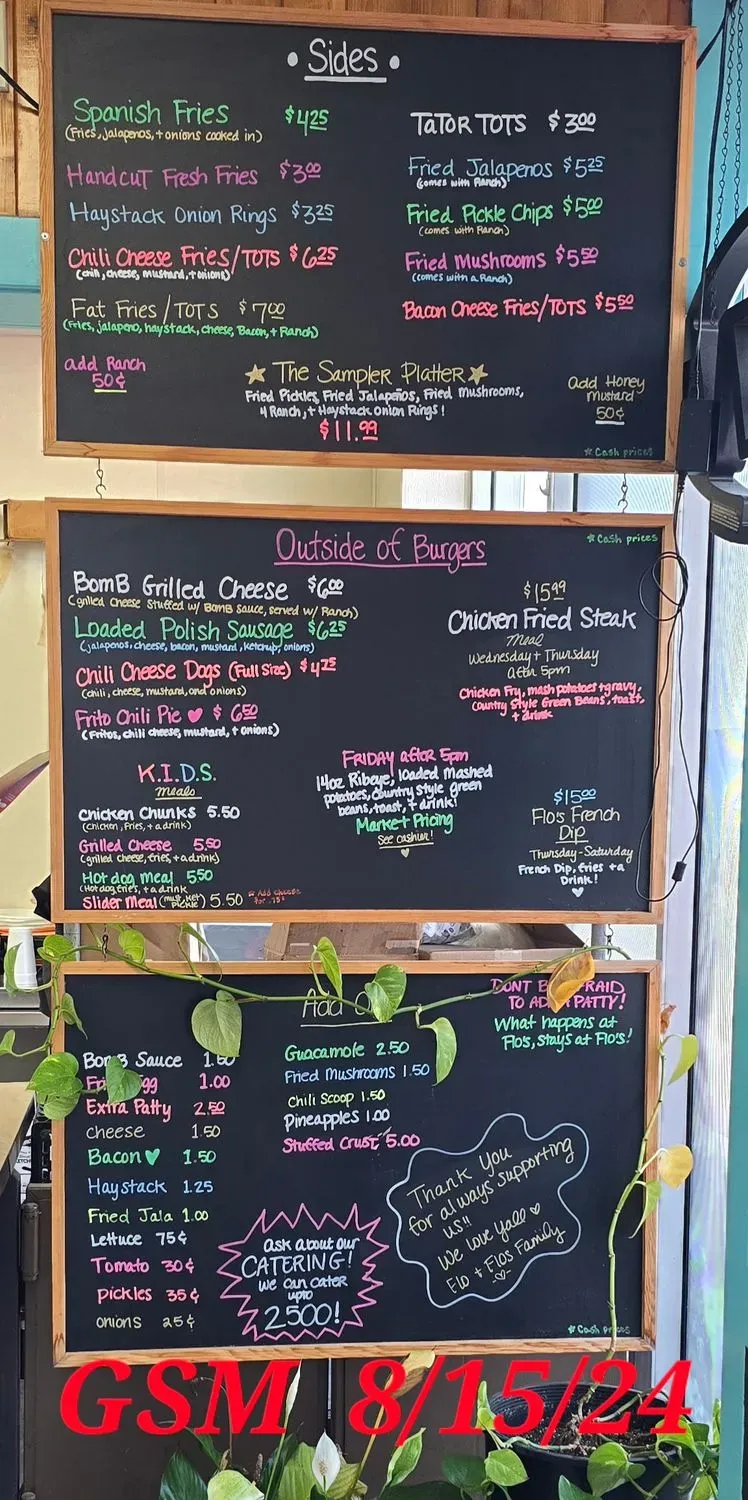 • Sides •
Spanish Fries $4.25
(Fries, jalapenos, + onions cooked in)
Handcut Fresh Fries $3.00
Haystack Onion Rings $3.25
Chili Cheese Fries/TOTS $6.25
(chili, cheese, mustard, + onions)
Fat Fries/TOTS $7.00
(Fries, jalapeno, haystack, cheese, Bacon, + Ranch)
add Ranch
50¢
TaTOR TOTS $3.00
Fried Jalapenos $5.25
(comes with Ranch)
Fried Pickle Chips $5.00
(comes with Ranch)
Fried Mushrooms $5.50
(comes with a Ranch)
Bacon Cheese Fries/TOTS $5.50
★ The Sampler Platter ★
Fried Pickles, Fried Jalapeños, Fried Mushrooms,
4 Ranch, + Haystack Onion Rings!
$11.99
Add Honey
Mustard
50¢
* Cash prices
Outside of Burgers
* Cash prices
BomB Grilled Cheese $6.00
(grilled cheese stuffed w/ BomB sauce, served w/ Ranch)
Loaded Polish Sausage $6.25
(jalapenos, cheese, bacon, mustard, ketchup, onions)
Chili Cheese Dogs (Full Size) $4.75
(chili, cheese, mustard, and onions)
Frito Chili Pie ♥ $6.50
(Fritos, chili cheese, mustard, + onions)
$15.99
Chicken Fried Steak
Meal
Wednesday + Thursday
after 5pm
Chicken Fry, mash potatoes + gravy,
Country Style Green Beans, toast,
+ drink
K.I.D.S.
meals
Chicken Chunks 5.50
(chicken, fries, + a drink)
Grilled Cheese 5.50
(grilled cheese, fries, + a drink)
Hot dog meal 5.50
(Hot dog, fries, + a drink
Slider Meal (must, ket, pickle) 5.50
* Add cheese
for .75¢
FRIDAY after 5pm
14oz Ribeye, loaded mashed
potatoes, country style green
beans, toast, + drink!
Market Pricing
See cashier!
♥
$15.00
Flo's French
Dip
Thursday-Saturday
French Dip, fries + a
Drink!
♥
Add
DONT BE AFRAID
TO ADD A PATTY!
What happens at
Flo's, stays at Flo's!
BomB Sauce 1.60
Fried Egg 1.00
Extra Patty 2.50
cheese 1.50
Bacon ♥ 1.50
Haystack 1.25
Fried Jala 1.00
Lettuce 75¢
Tomato 30¢
pickles 35¢
onions 25¢
Guacamole 2.50
Fried Mushrooms 1.50
Chili Scoop 1.50
Pineapples 1.00
Stuffed Crust 5.00
ask about our
CATERING!
we can cater
upto
2500!
Thank You
for always supporting
us!!
We love yall ♡
Flo + Flos Family
* Cash prices
GSM 8/15/24